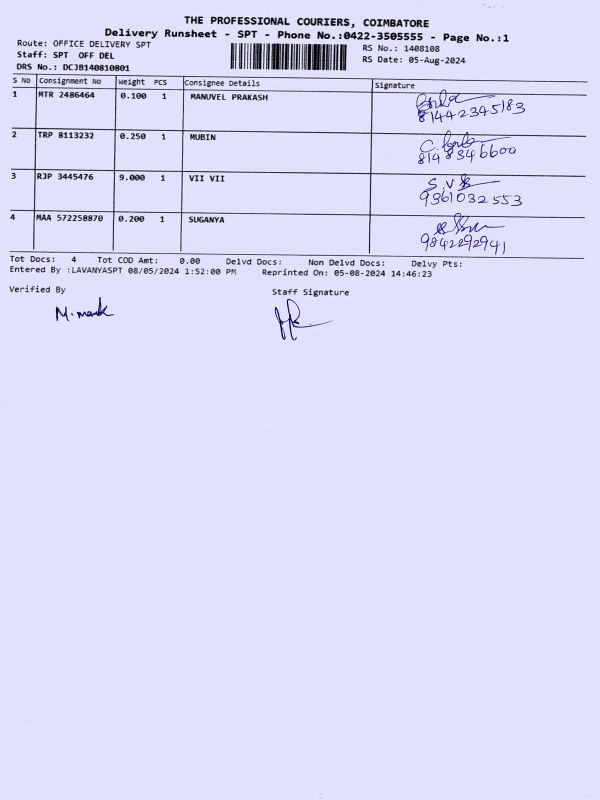 THE PROFESSIONAL COURIERS, COIMBATORE
Delivery Runsheet - SPT - Phone No.:0422-3505555 - Page No.:1
Route: OFFICE DELIVERY SPT RS No.: 1408108
Staff: SPT OFF DEL RS Date: 05-Aug-2024
DRS No.: DCJB140810801
S No Consignment No Weight PCS Consignee Details Signature
1 MTR 2486464 0.100 1 MANUVEL PRAKASH
81442345183
2 TRP 8113232 0.250 1 MUBIN
8148346600
3 RJP 3445476 9.000 1 VII VII
9361032553
4 MAA 572258870 0.200 1 SUGANYA
9842292941
Tot Docs: 4 Tot COD Amt: 0.00 Delvd Docs: Non Delvd Docs: Delvy Pts:
Entered By :LAVANYASPT 08/05/2024 1:52:00 PM Reprinted On: 05-08-2024 14:46:23
Verified By Staff Signature